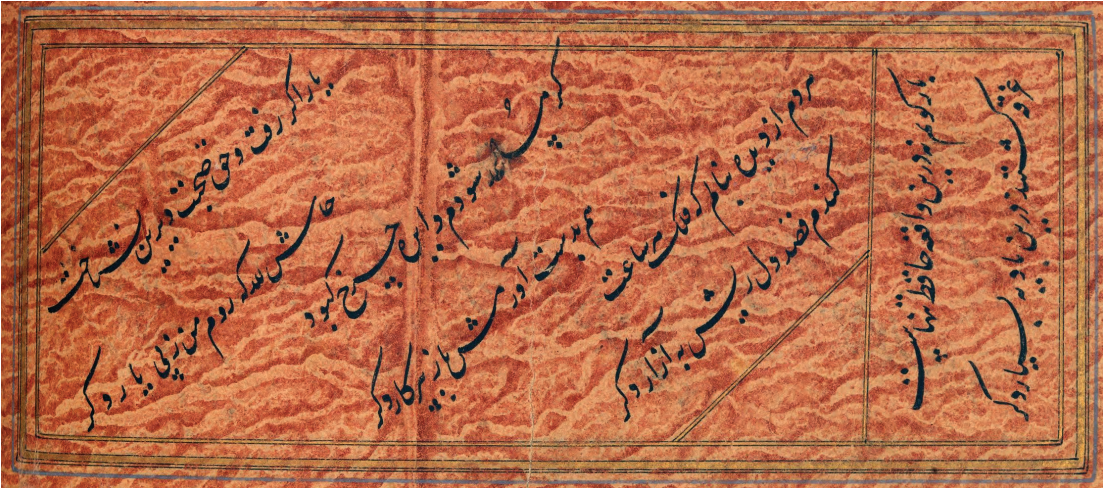 یار اگر رفت و حق صحبت دیرین نشناخت
حاش لله که روم من ز پی یار دگر
گر مساعد شودم دایره چرخ کبود
هم بدست آورمش باز بپرگار دگر
هردم از دیده بنالم که فلک هر ساعت
کندم قصد دل ریش به آزار دگر
باز گویم نه درین واقعه حافظ تنهاست
غرقه گشتند درین بادیه بسیار دگر